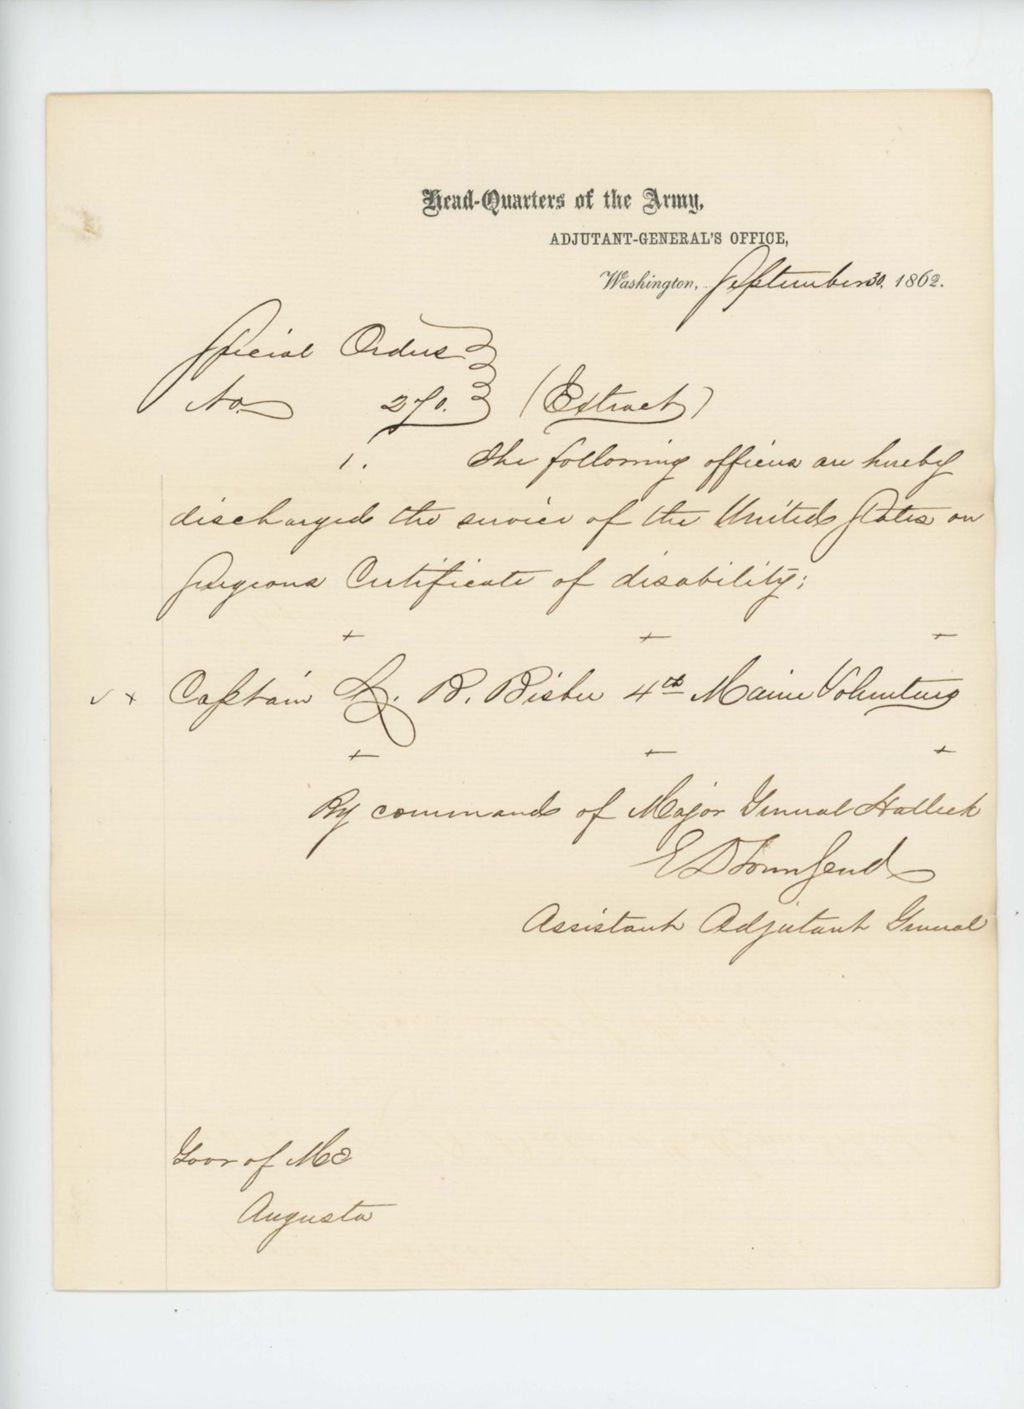 Head-Quarters of the Army,
ADJUTANT-GENERAL'S OFFICE,
Washington, September 30. 1862.
Special Orders
No. 270. (Extract)
1. The following officers are hereby
discharged the service of the United States on
Surgeons Certificate of disability;
+ + +
✓ + Captain L. B. Bisbee 4th Maine Volunteers
+ + +
By command of Major General Halleck
E D Townsend
Assistant Adjutant General
Govr of Me
Augusta